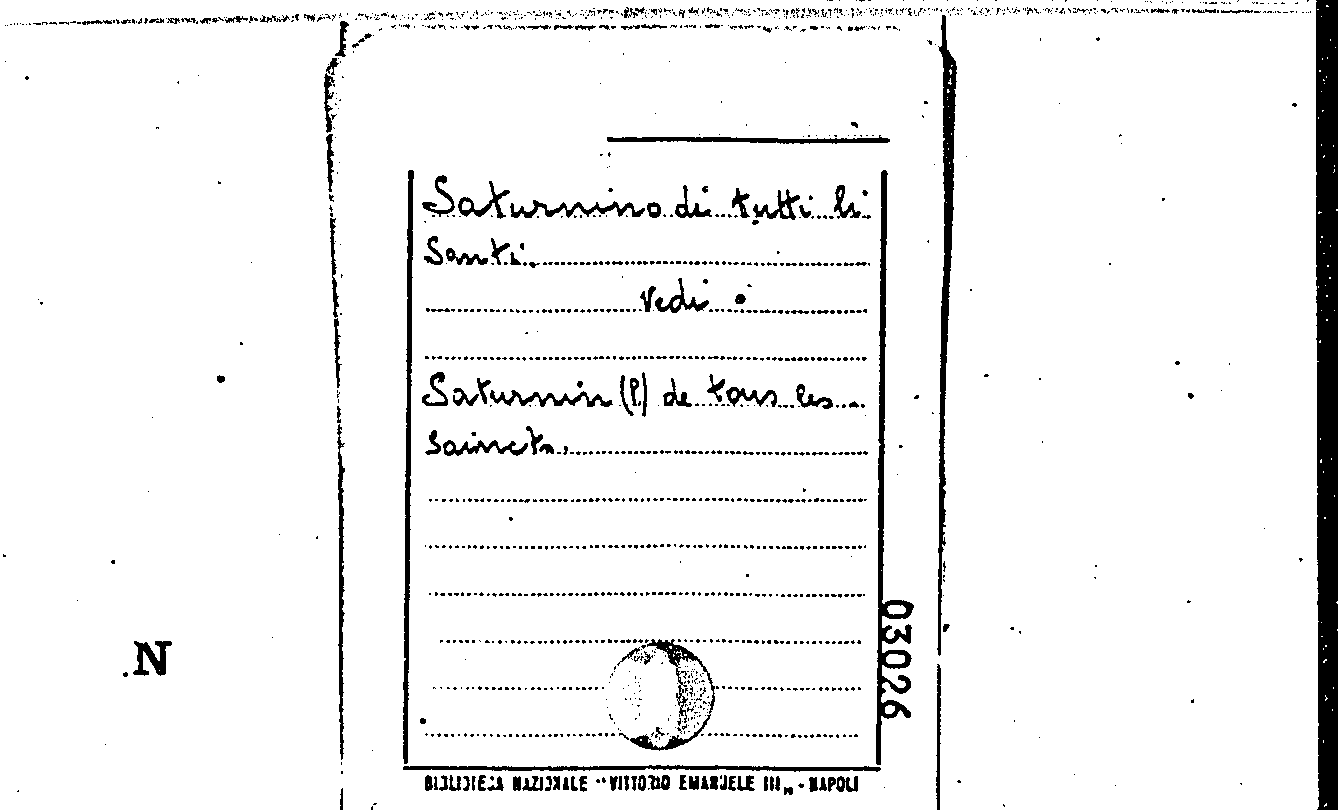 Saturnino di tutti li
Santi.
Vedi :
Saturnin (P.) de tous les
saincts.
03026
N
BIBLIOTECA NAZIONALE "VITTORIO EMANUELE III" - NAPOLI